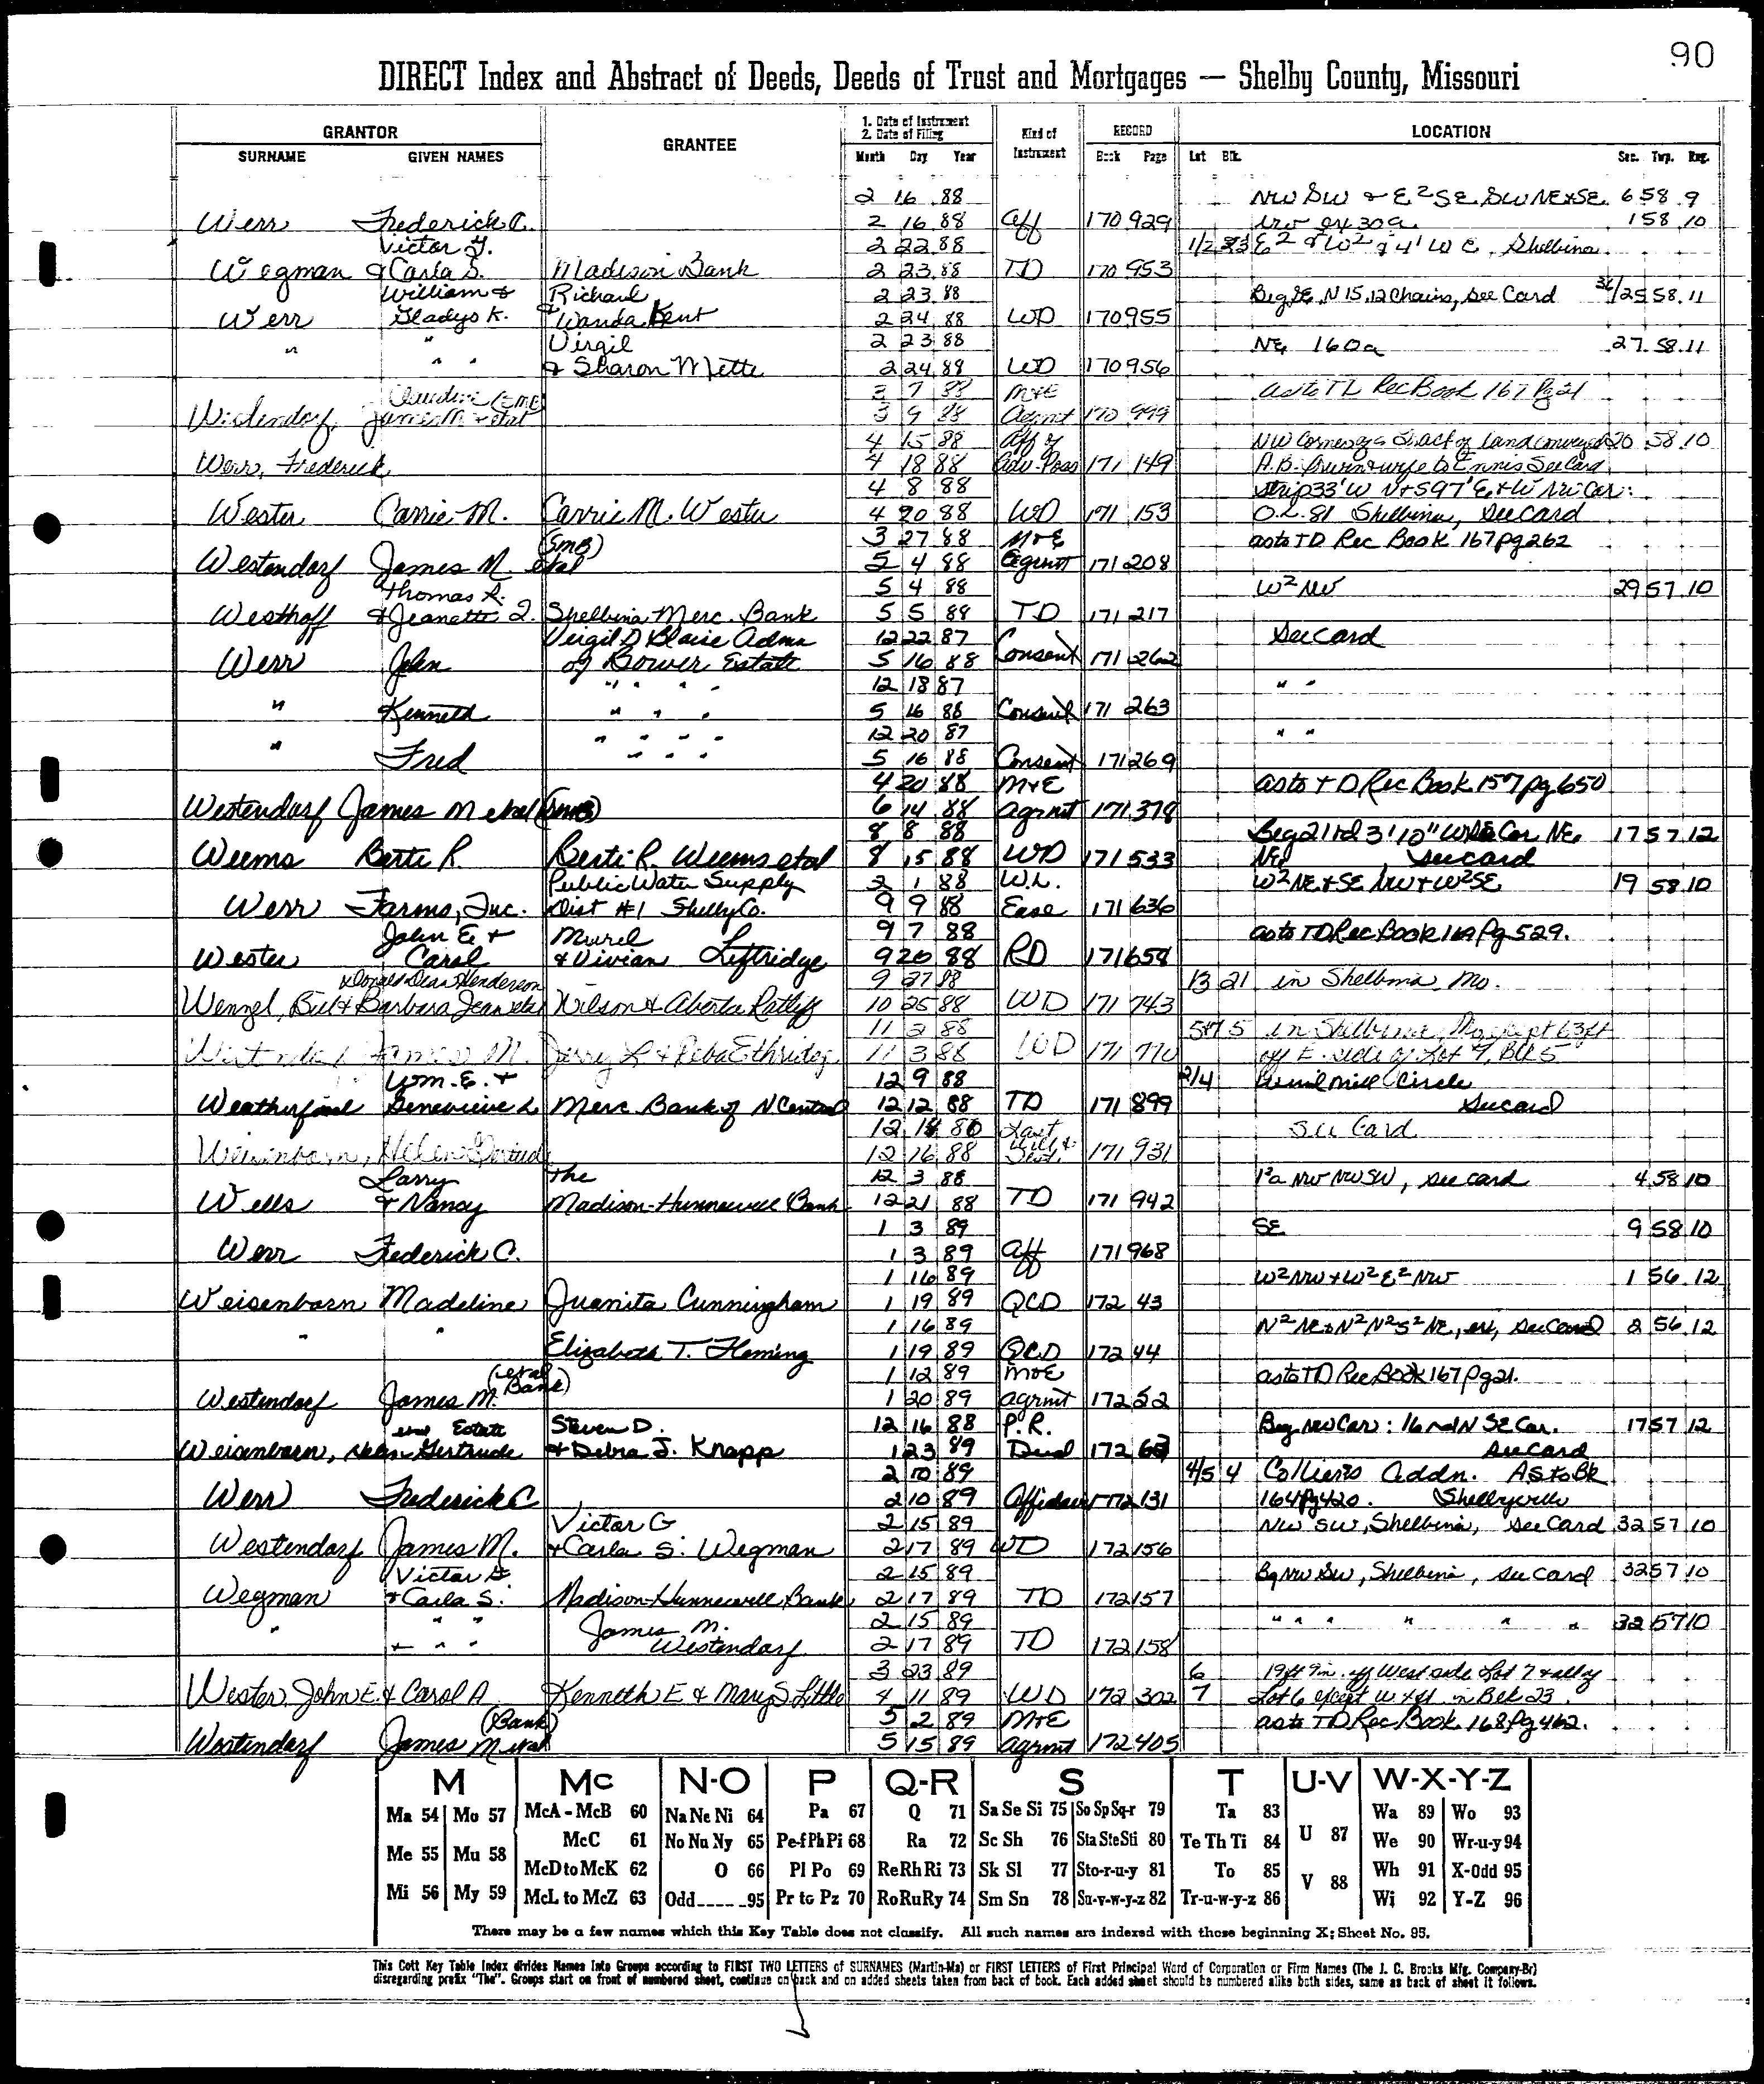 90
DIRECT Index and Abstract of Deeds, Deeds of Trust and Mortgages — Shelby County, Missouri
GRANTOR GRANTEE 1. Date of Instrument 2. Date of Filing Kind of Instrument RECORD LOCATION
SURNAME GIVEN NAMES Month Day Year Book Page Lot Blk. Sec. Twp. Rng.
2 16 88 NW SW & E² SE, SW NE & SE 6 58 9
Werr Frederick C. 2 16 88 Aff 170 929 30a 1 58 10
Victor G. 2 22 88 1/2 23 E² of W² Shelbina
Wegman & Carla S. Madison Bank 2 23 88 TD 170 953
William & Richard 2 23 88 Beg SE, N 15.12 Chains, See Card 36/25 58 11
Werr Gladys K. & Wanda Kent 2 24 88 WD 170 955
" " Virgil 2 23 88 NE 160a 27 58 11
" " & Sharon Mette 2 24 88 WD 170 956
3 7 88 M&E as to TD Rec Book 167 Pg 21
James M. & etal 3 9 88 Agmt 170 999
4 15 88 Aff of NW Corner of a tract of land conveyed 20 58 10
Werr, Frederick 4 18 88 Adv. Poss 171 149 A.B. & wife to Ennis See Card
4 8 88 strip 33' W N & S 97' E & W NW Cor:
Wester Carrie M. Carrie M. Wester 4 20 88 WD 171 153 O.L. 81 Shelbina, See Card
(SMB) 3 27 88 M&E as to TD Rec Book 167 pg 262
Westendorf James M. etal 5 4 88 Agmt 171 208
Thomas R. 5 4 88 W² NW 29 57 10
Westhoff & Jeanette L. Shelbina Merc. Bank 5 5 88 TD 171 217
Virgil D Blaise Adms 12 22 87 See Card
Werr John of Bower Estate 5 16 88 Consent 171 262
" " " " 12 18 87 " "
" Kenneth " " " 5 16 88 Consent 171 263
" " " " " 12 20 87 " "
Fred " " " 5 16 88 Consent 171 269
4 20 88 M&E as to TD Rec Book 157 pg 650
Westendorf James M etal (SMB) 6 14 88 agrmt 171 378
8 8 88 Beg 21 rd 3'10" W SE Cor NE 17 57 12
Weems Berti R. Berti R. Weems etal 8 15 88 WD 171 533 NE, See card
Public Water Supply 2 1 88 W.L. W² NE & SE NW & W² SE 19 58 10
Werr Farms, Inc. Dist #1 Shelby Co. 9 9 88 Ease 171 636
John E & Murel 9 7 88 as to TD Rec Book 169 Pg 529.
Wester Carol & Vivian Leftridge 9 20 88 RD 171 658
& Donald Dean Henderson 9 27 88 13 21 in Shelbina Mo.
Wenzel, Bill & Barbara Jean etal Wilson & Alberta Ratliff 10 25 88 WD 171 743
11 2 88 5 in Shelbina, Mo except 63 ft
James M. Jerry L & Reba Ethridge 11 3 88 WD 171 770 off E. side of Lot 7, Blk 5
Wm. E. & 12 9 88 2/4 Circle
Weatherford Genevieve L Merc Bank of N Central 12 12 88 TD 171 899 See card
12 14 Last See Card
Weisenborn, Helen Gertrude 12 16 88 Will & Test. 171 931
Larry the 12 3 88 1ªa NW NW SW, see card 4 58 10
Wells & Nancy Madison-Hunnewell Bank 12 21 88 TD 171 942
1 3 89 SE 9 58 10
Werr Frederick C. 1 3 89 Aff 171 968
1 16 89 W² NW & W² E² NW 1 56 12
Weisenborn Madeline Juanita Cunningham 1 19 89 QCD 172 43
" " 1 16 89 N² NE & N² N² S² NE, See Card 2 56 12
Elizabeth T. Fleming 1 19 89 QCD 172 44
(etal Bank) 1 12 89 M&E as to TD Rec Book 167 pg 21.
Westendorf James M. 1 20 89 agrmt 172 52
Estate Steven D. 12 16 88 P.R. Beg. NW Cor: 16 rd N SE Cor. 17 57 12
Weisenborn, Helen Gertrude & Debra J. Knapp 1 23 89 Deed 172 62 See Card
2 10 89 4/5 4 Colliers Addn. As to Bk
Werr Frederick C 2 10 89 Affidavit 172 131 164 Pg 420. Shelbyville
Victor G 2 15 89 NW SW, Shelbina, See Card 32 57 10
Westendorf James M. & Carla S. Wegman 2 17 89 WD 172 156
Victor G 2 15 89 Bg NW SW, Shelbina, See Card 32 57 10
Wegman & Carla S. Madison-Hunnewell Bank 2 17 89 TD 172 157
" " " James M. 2 15 89 " " " " " " 32 57 10
& " " Westendorf 2 17 89 TD 172 158
3 23 89 6 19 ft 9 in. off West side Lot 7 & all of
Wester, John E. & Carol A Kenneth E & Mary S Little 4 11 89 WD 172 302 7 Lot 6 except W ft in Blk 23.
(Bank) 5 2 89 M&E as to TD Rec Book 168 Pg 462.
Westendorf James M etal 5 15 89 agrmt 172 405
M Mc N-O P Q-R S T U-V W-X-Y-Z
Ma 54 Mo 57 McA - McB 60 Na Ne Ni 64 Pa 67 Q 71 Sa Se Si 75 So Sp Sq-r 79 Ta 83 U 87 Wa 89 Wo 93
Me 55 Mu 58 McC 61 No Nu Ny 65 Pe-f Ph Pi 68 Ra 72 Sc Sh 76 Sta Ste Sti 80 Te Th Ti 84 We 90 Wr-u-y 94
McD to McK 62 O 66 Pl Po 69 Re Rh Ri 73 Sk Sl 77 Sto-r-u-y 81 To 85 V 88 Wh 91 X-Odd 95
Mi 56 My 59 McL to McZ 63 Odd 95 Pr to Pz 70 Ro Ru Ry 74 Sm Sn 78 Su-v-w-y-z 82 Tr-u-w-y-z 86 Wi 92 Y-Z 96
There may be a few names which this Key Table does not classify. All such names are indexed with those beginning X; Sheet No. 95.
This Cott Key Table Index divides Names Into Groups according to FIRST TWO LETTERS of SURNAMES (Martin-Ma) or FIRST LETTERS of First Principal Word of Corporation or Firm Names (The J. C. Brooks Mfg. Company-Br)
disregarding prefix "The". Groups start on front of numbered sheet, continue on back and on added sheets taken from back of book. Each added sheet should be numbered alike both sides, same as back of sheet it follows.